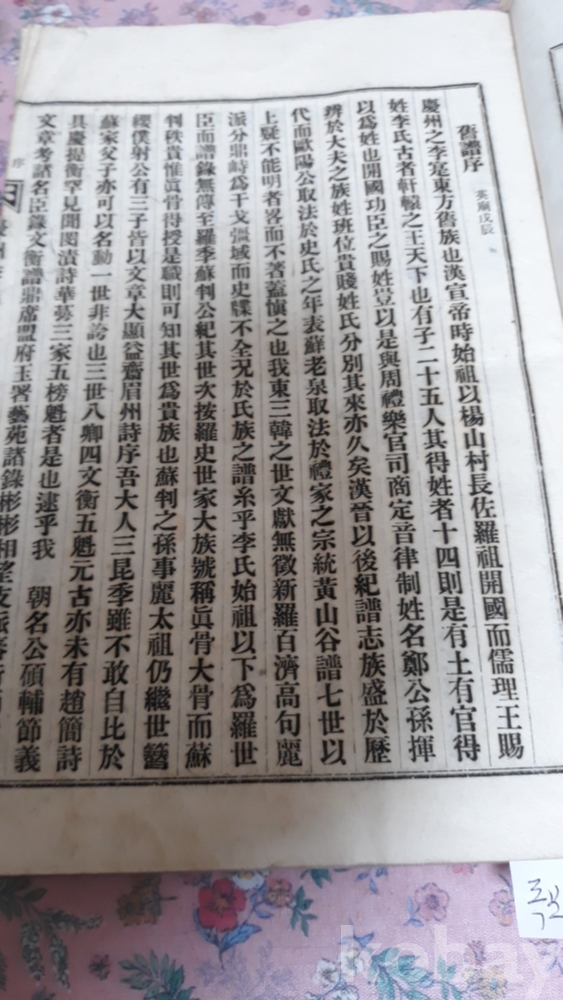 舊譜序 英廟戊辰
慶州之李寔東方舊族也漢宣帝時始祖以楊山村長佐羅祖開國而儒理王賜
姓李氏古者軒轅之王天下也有子二十五人其得姓者十四則是有土有官得
以爲姓也開國功臣之賜姓豈以是與周禮樂官司商定音律制姓名鄭公孫揮
辨於大夫之族姓班位貴賤姓氏分別其來亦久矣漢晉以後紀譜志族盛於歷
代而歐陽公取法於史氏之年表蘇老泉取法於禮家之宗統黃山谷譜七世以
上疑不能明者畧而不著蓋愼之也我東三韓之世文獻無徵新羅百濟高句麗
派分鼎峙爲干戈彊域而史牒不全况於氏族之譜系乎李氏始祖以下爲羅世
臣而譜錄無傳至羅季蘇判公紀其世次按羅史世家大族號稱眞骨大骨而蘇
判秩貴惟眞骨得授是職則可知其世爲貴族也蘇判之孫事麗太祖仍繼世簪
纓僕射公有三子皆以文章大顯益齋眉州詩序吾大人三昆季雖不敢自比於
蘇家父子亦可以名動一世非誇也三世八卿四文衡五魁元古亦未有趙簡詩
具慶提衡罕見聞閔漬詩華蕚三家五榜魁者是也逮乎我 朝名公碩輔節義
文章考諸名臣錄文衡譜鼎席盟府玉署藝苑諸錄彬彬相望支派
序
kobay